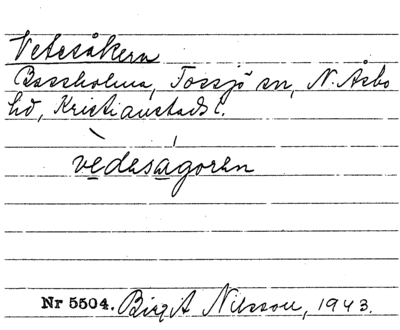 Vetesåkern
Bassholma, Tossjö sn, N. Åsbo
hd, Kristianstads l.
vèdeságoren
Nr 5504. Birgit Nilsson, 1943.